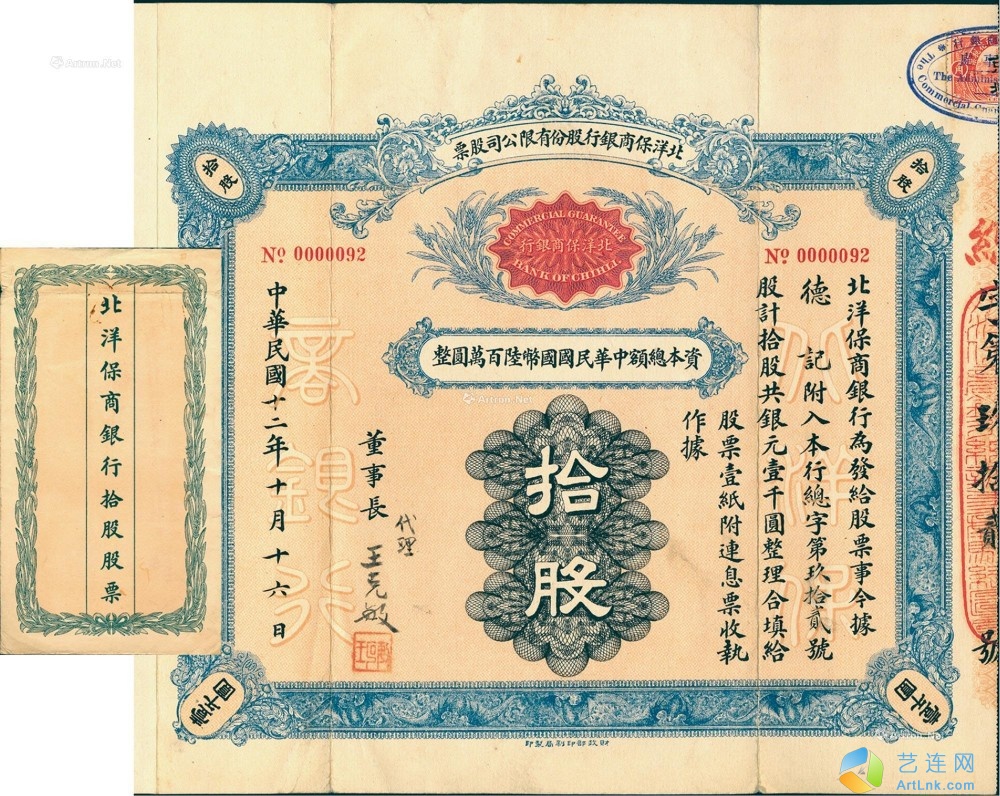 北洋保商銀行股份有限公司股票
拾股
拾股
COMMERCIAL GUARANTEE
北洋保商銀行
BANK OF CHIHLI
Nº 0000092
Nº 0000092
資本總額中華民國國幣陸百萬圓整
北洋保商銀行為發給股票事今據
德記附入本行總字第玖拾貳號
股計拾股共銀元壹千圓整理合填給
股票壹紙附連息票收執
作據
拾股
董事長
代理
王克敏
中華民國十二年十月十六日
北洋保商銀行
壹千圓
壹千圓
財政部印刷局製印
總字第玖拾貳號
The Commercial
北洋保商銀行拾股股票
Artron.Net
Artron.Net
艺连网
ArtLnk.com